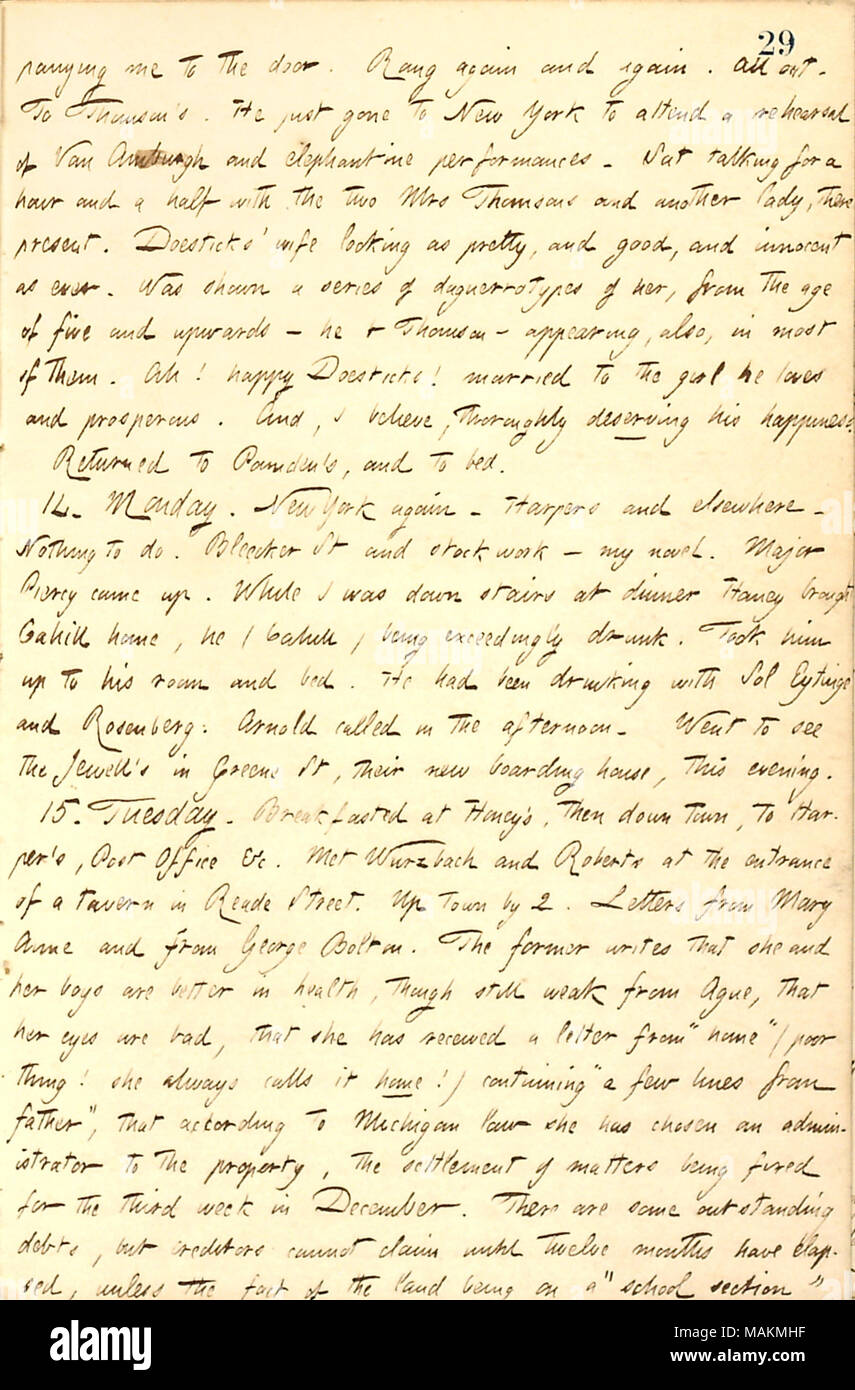 29
panying me to the door. Rang again and again. All out.
To Thomson's. He just gone to New York to attend a rehearsal
of Van Amburgh and elephantine performances. Sat talking for a
hour and a half with the two Mrs Thomsons and another lady, there
present. Doesticks' wife looking as pretty, and good, and innocent
as ever. Was shown a series of daguerrotypes of her, from the age
of five and upwards — he & Thomson — appearing, also, in most
of them. Ah! happy Doesticks! married to the girl he loves
and prosperous. And, I believe, thoroughly deserving his happiness.
Returned to Parnden's, and to bed.
14. Monday. New York again — Harpers and elsewhere —
Nothing to do. Bleecker St and stock work — my novel. Major
Piercy came up. While I was down stairs at dinner Haney brought
Cahill home, he (Cahill) being exceedingly drunk. Took him
up to his room and bed. He had been drinking with Sol Eytinge
and Rosenberg. Arnold called in the afternoon. Went to see
the Jewell's in Greene St, their new boarding house, this evening.
15. Tuesday. Breakfasted at Honey's, then down town, to Har-
per's, Post Office &c. Met Wurzbach and Roberts at the entrance
of a tavern in Reade Street. Up town by 2. Letters from Mary
Anne and from George Bolton. The former writes that she and
her boys are better in health, though still weak from Ague, that
her eyes are bad, that she has received a letter from "home" (poor
thing! she always calls it home!) containing "a few lines from
father", that according to Michigan law she has chosen an admin-
istrator to the property, the settlement of matters being fixed
for the third week in December. There are some outstanding
debts, but creditors cannot claim until twelve months have elap-
sed, unless the fact of the land being on a "school section"
alamy
Image ID: MAKMHF
www.alamy.com